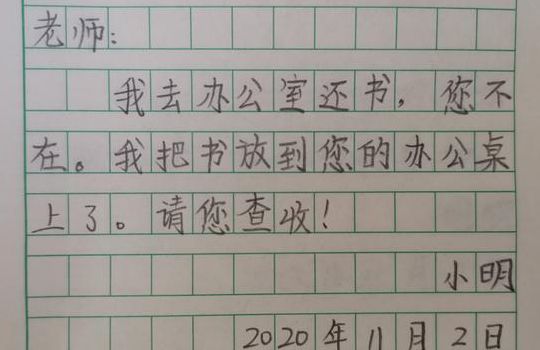 老师:
我去办公室还书，您不
在。我把书放到您的办公桌
上了。请您查收!
小明
2020年11月2日